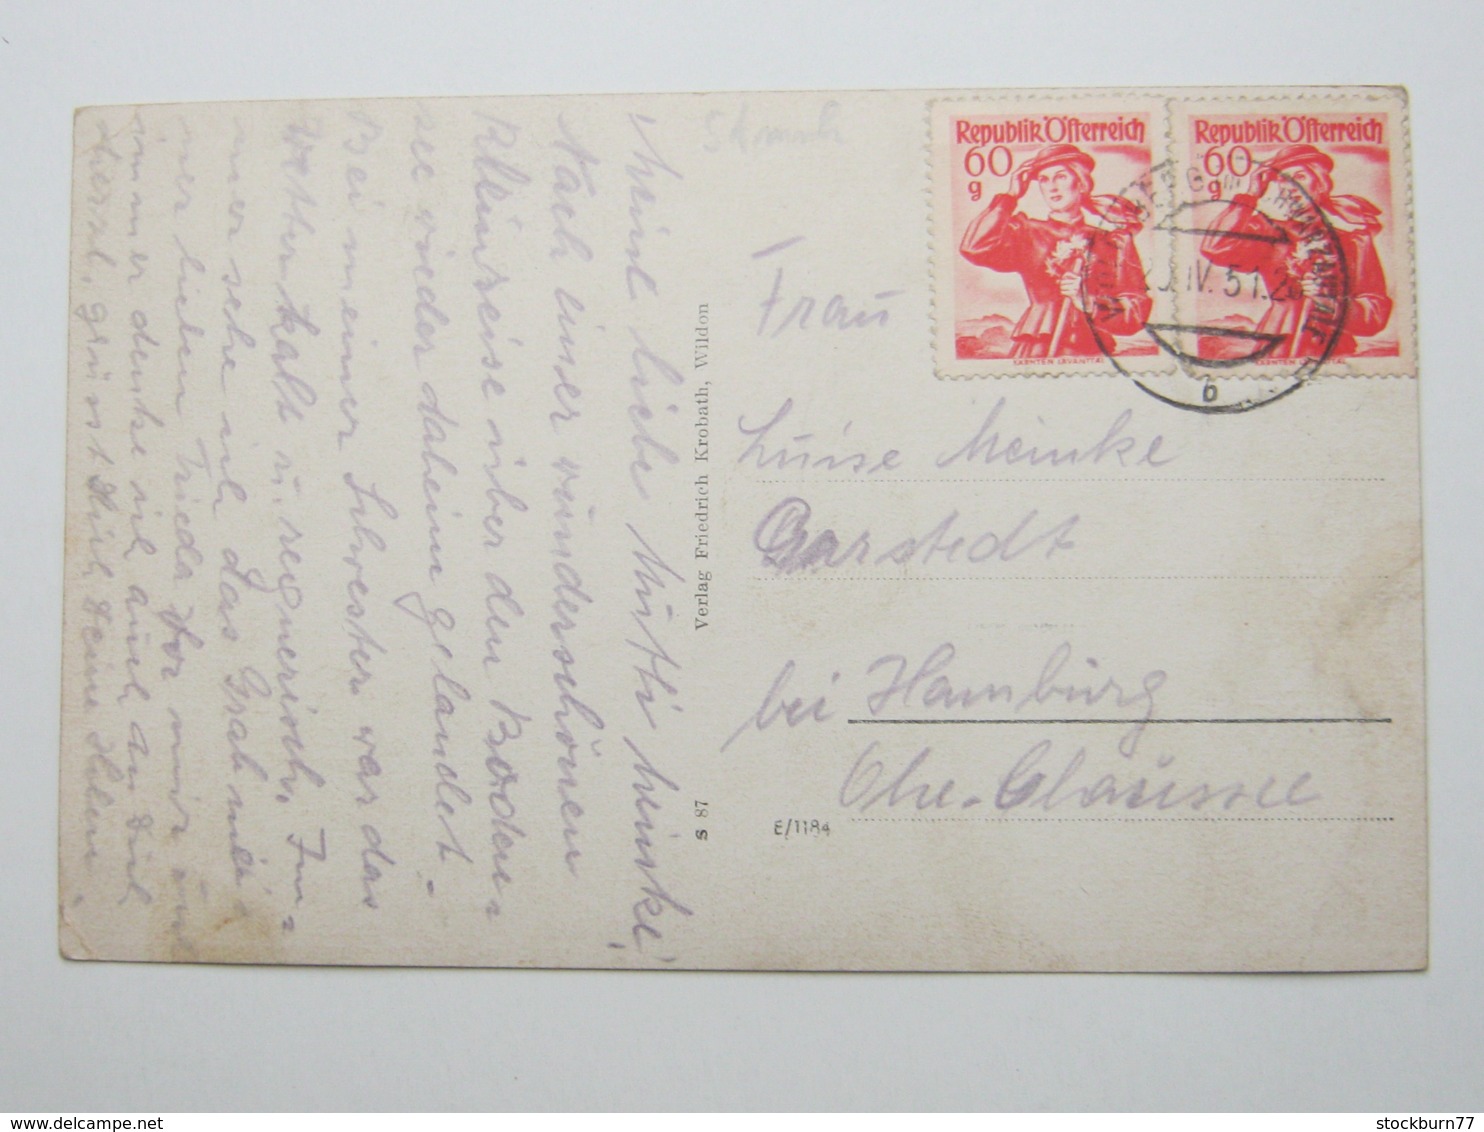 Meine liebe Mutti Minke!
Nach einer wunderschönen
Rheinreise über den Boden-
see wieder daheim gelandet.
Bei meiner Schwester war das
Wetter kalt u. regnerisch. Im-
mer sehe ich das Grab mei-
ner lieben Frieda vor mir und
immer denke ich auch an Dich
Herzl. grüsst Dich Deine
Verlag Friedrich Krobath, Wildon
S 87
Republik Österreich
60
g
KÄRNTEN LAVANTTAL
Republik Österreich
60
g
IV. 51.
b
Frau
Luise Meinke
Garstedt
bei Hamburg
Ohe-Chaussee
E/1184
stockburn77